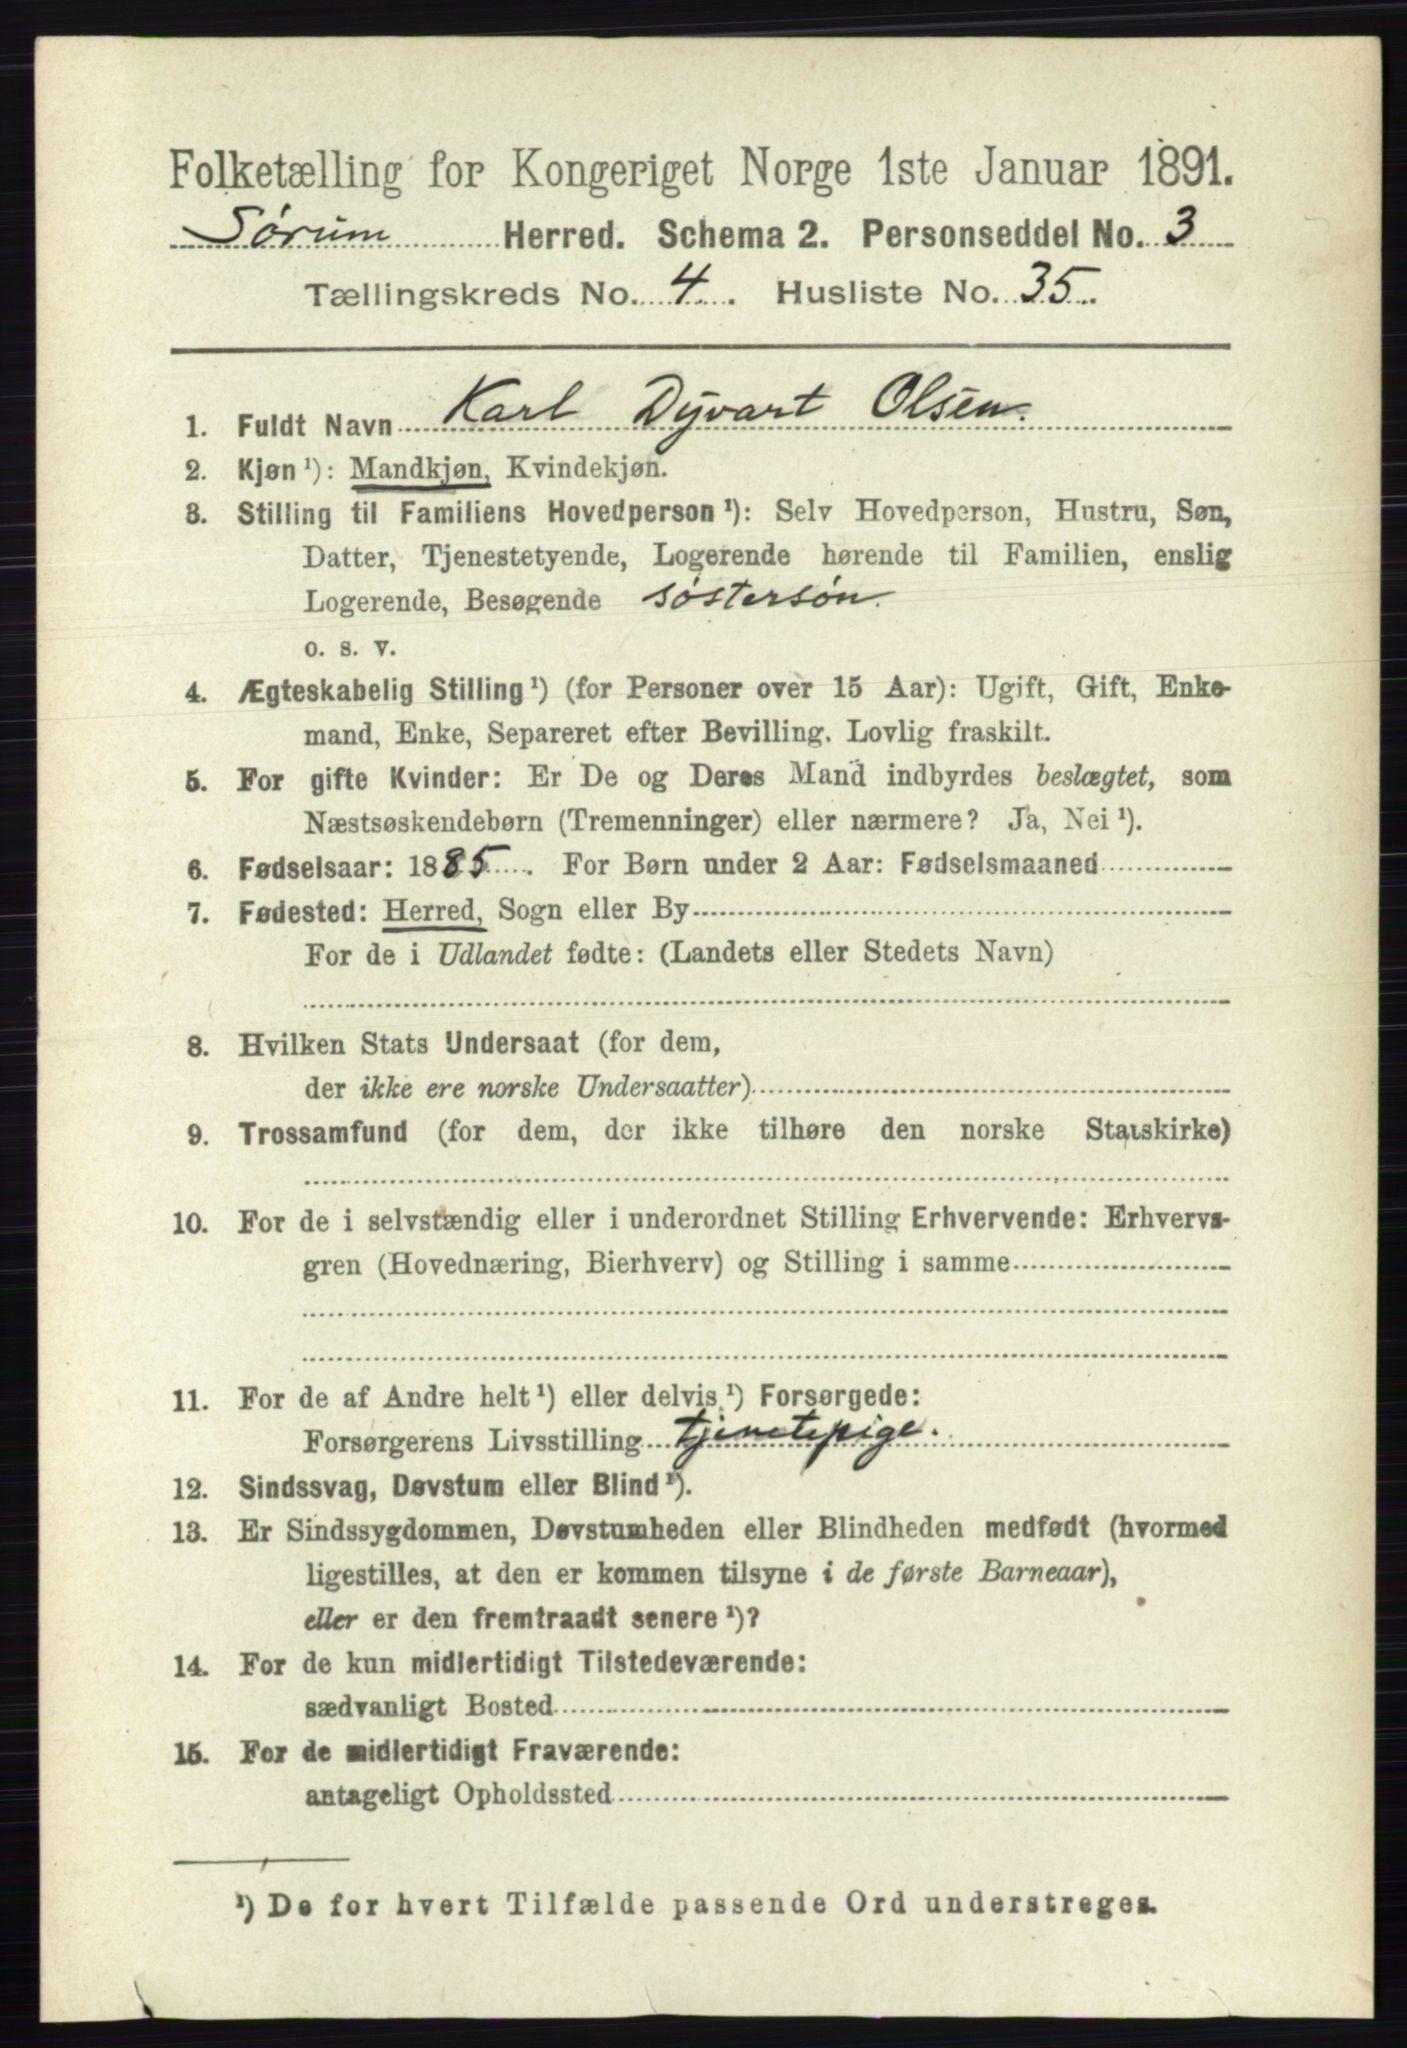 Folketælling for Kongeriget Norge 1ste Januar 1891.
Sørum Herred. Schema 2. Personseddel No. 3
Tællingskreds No. 4. Husliste No. 35.
1. Fuldt Navn Karl Dyvart Olsen.
2. Kjøn ¹): Mandkjøn, Kvindekjøn.
3. Stilling til Familiens Hovedperson ¹): Selv Hovedperson, Hustru, Søn,
Datter, Tjenestetyende, Logerende hørende til Familien, enslig
Logerende, Besøgende søstersøn.
o. s. v.
4. Ægteskabelig Stilling ¹) (for Personer over 15 Aar): Ugift, Gift, Enke-
mand, Enke, Separeret efter Bevilling. Lovlig fraskilt.
5. For gifte Kvinder: Er De og Deres Mand indbyrdes beslægtet, som
Næstsøskendebørn (Tremenninger) eller nærmere? Ja, Nei ¹).
6. Fødselsaar: 1885. For Børn under 2 Aar: Fødselsmaaned
7. Fødested: Herred, Sogn eller By
For de i Udlandet fødte: (Landets eller Stedets Navn)
8. Hvilken Stats Undersaat (for dem,
der ikke ere norske Undersaatter)
9. Trossamfund (for dem, der ikke tilhøre den norske Statskirke)
10. For de i selvstændig eller i underordnet Stilling Erhvervende: Erhvervs-
gren (Hovednæring, Bierhverv) og Stilling i samme
11. For de af Andre helt ¹) eller delvis ¹) Forsørgede:
Forsørgerens Livsstilling tjenetepige.
12. Sindssvag, Døvstum eller Blind ¹).
13. Er Sindssygdommen, Døvstumheden eller Blindheden medfødt (hvormed
ligestilles, at den er kommen tilsyne i de første Barneaar),
eller er den fremtraadt senere ¹)?
14. For de kun midlertidigt Tilstedeværende:
sædvanligt Bosted
15. For de midlertidigt Fraværende:
antageligt Opholdssted
¹) De for hvert Tilfælde passende Ord understreges.